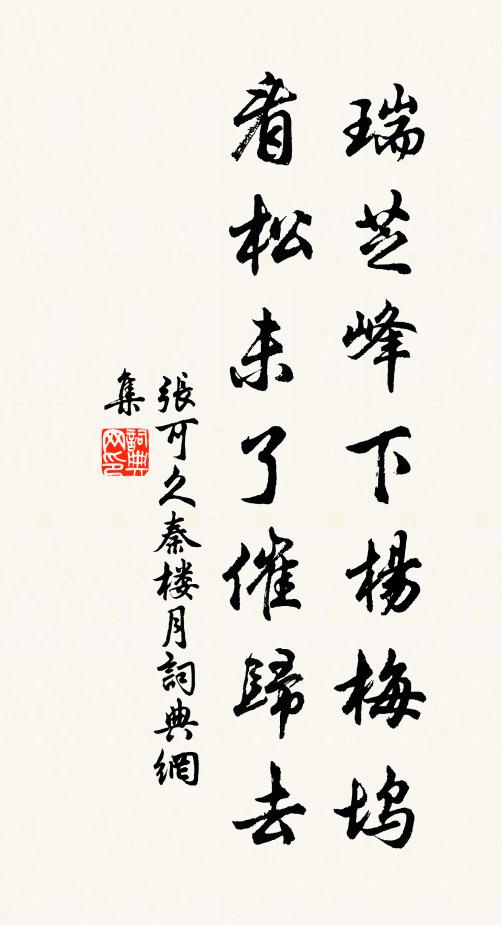 瑞芝峰下楊梅塢
看松未了催歸去
張可久秦楼月詞典網
集
詞典网印